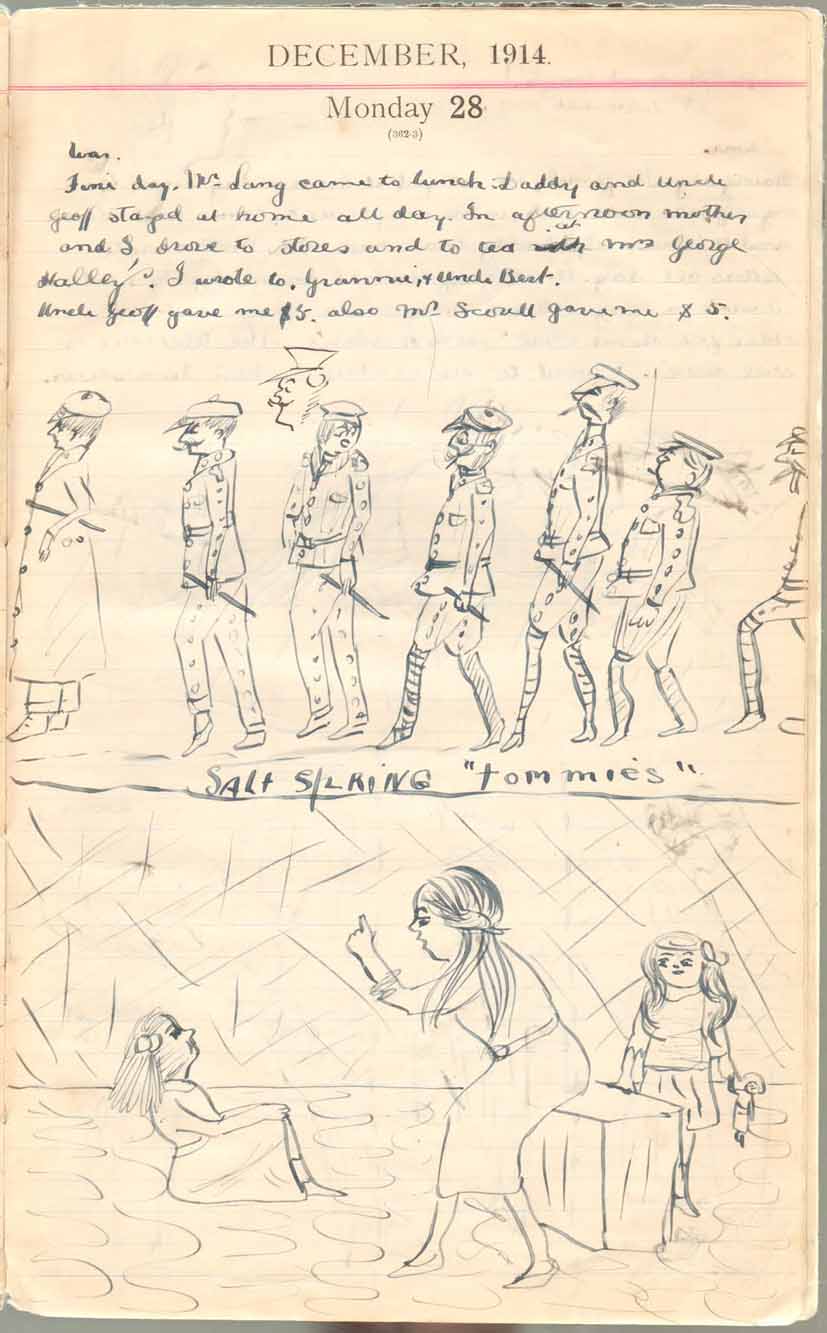 DECEMBER, 1914.
Monday 28
(362-3)
War.
Fine day. Mr. Lang came to lunch. Daddy and Uncle
Geoff stayed at home all day. In afternoon mother
and I, drove to stores and to tea at Mrs George
Halley's. I wrote to, Grannie, & Uncle Bert.
Uncle Geoff gave me $5. also Mr. Scovell gave me $5.
SALT SPRING "tommies".